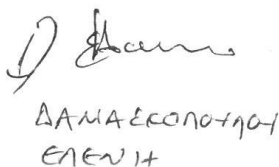 ΔΑΜΑΣΚΟΠΟΥΛΟΥ
ΕΛΕΝΗ